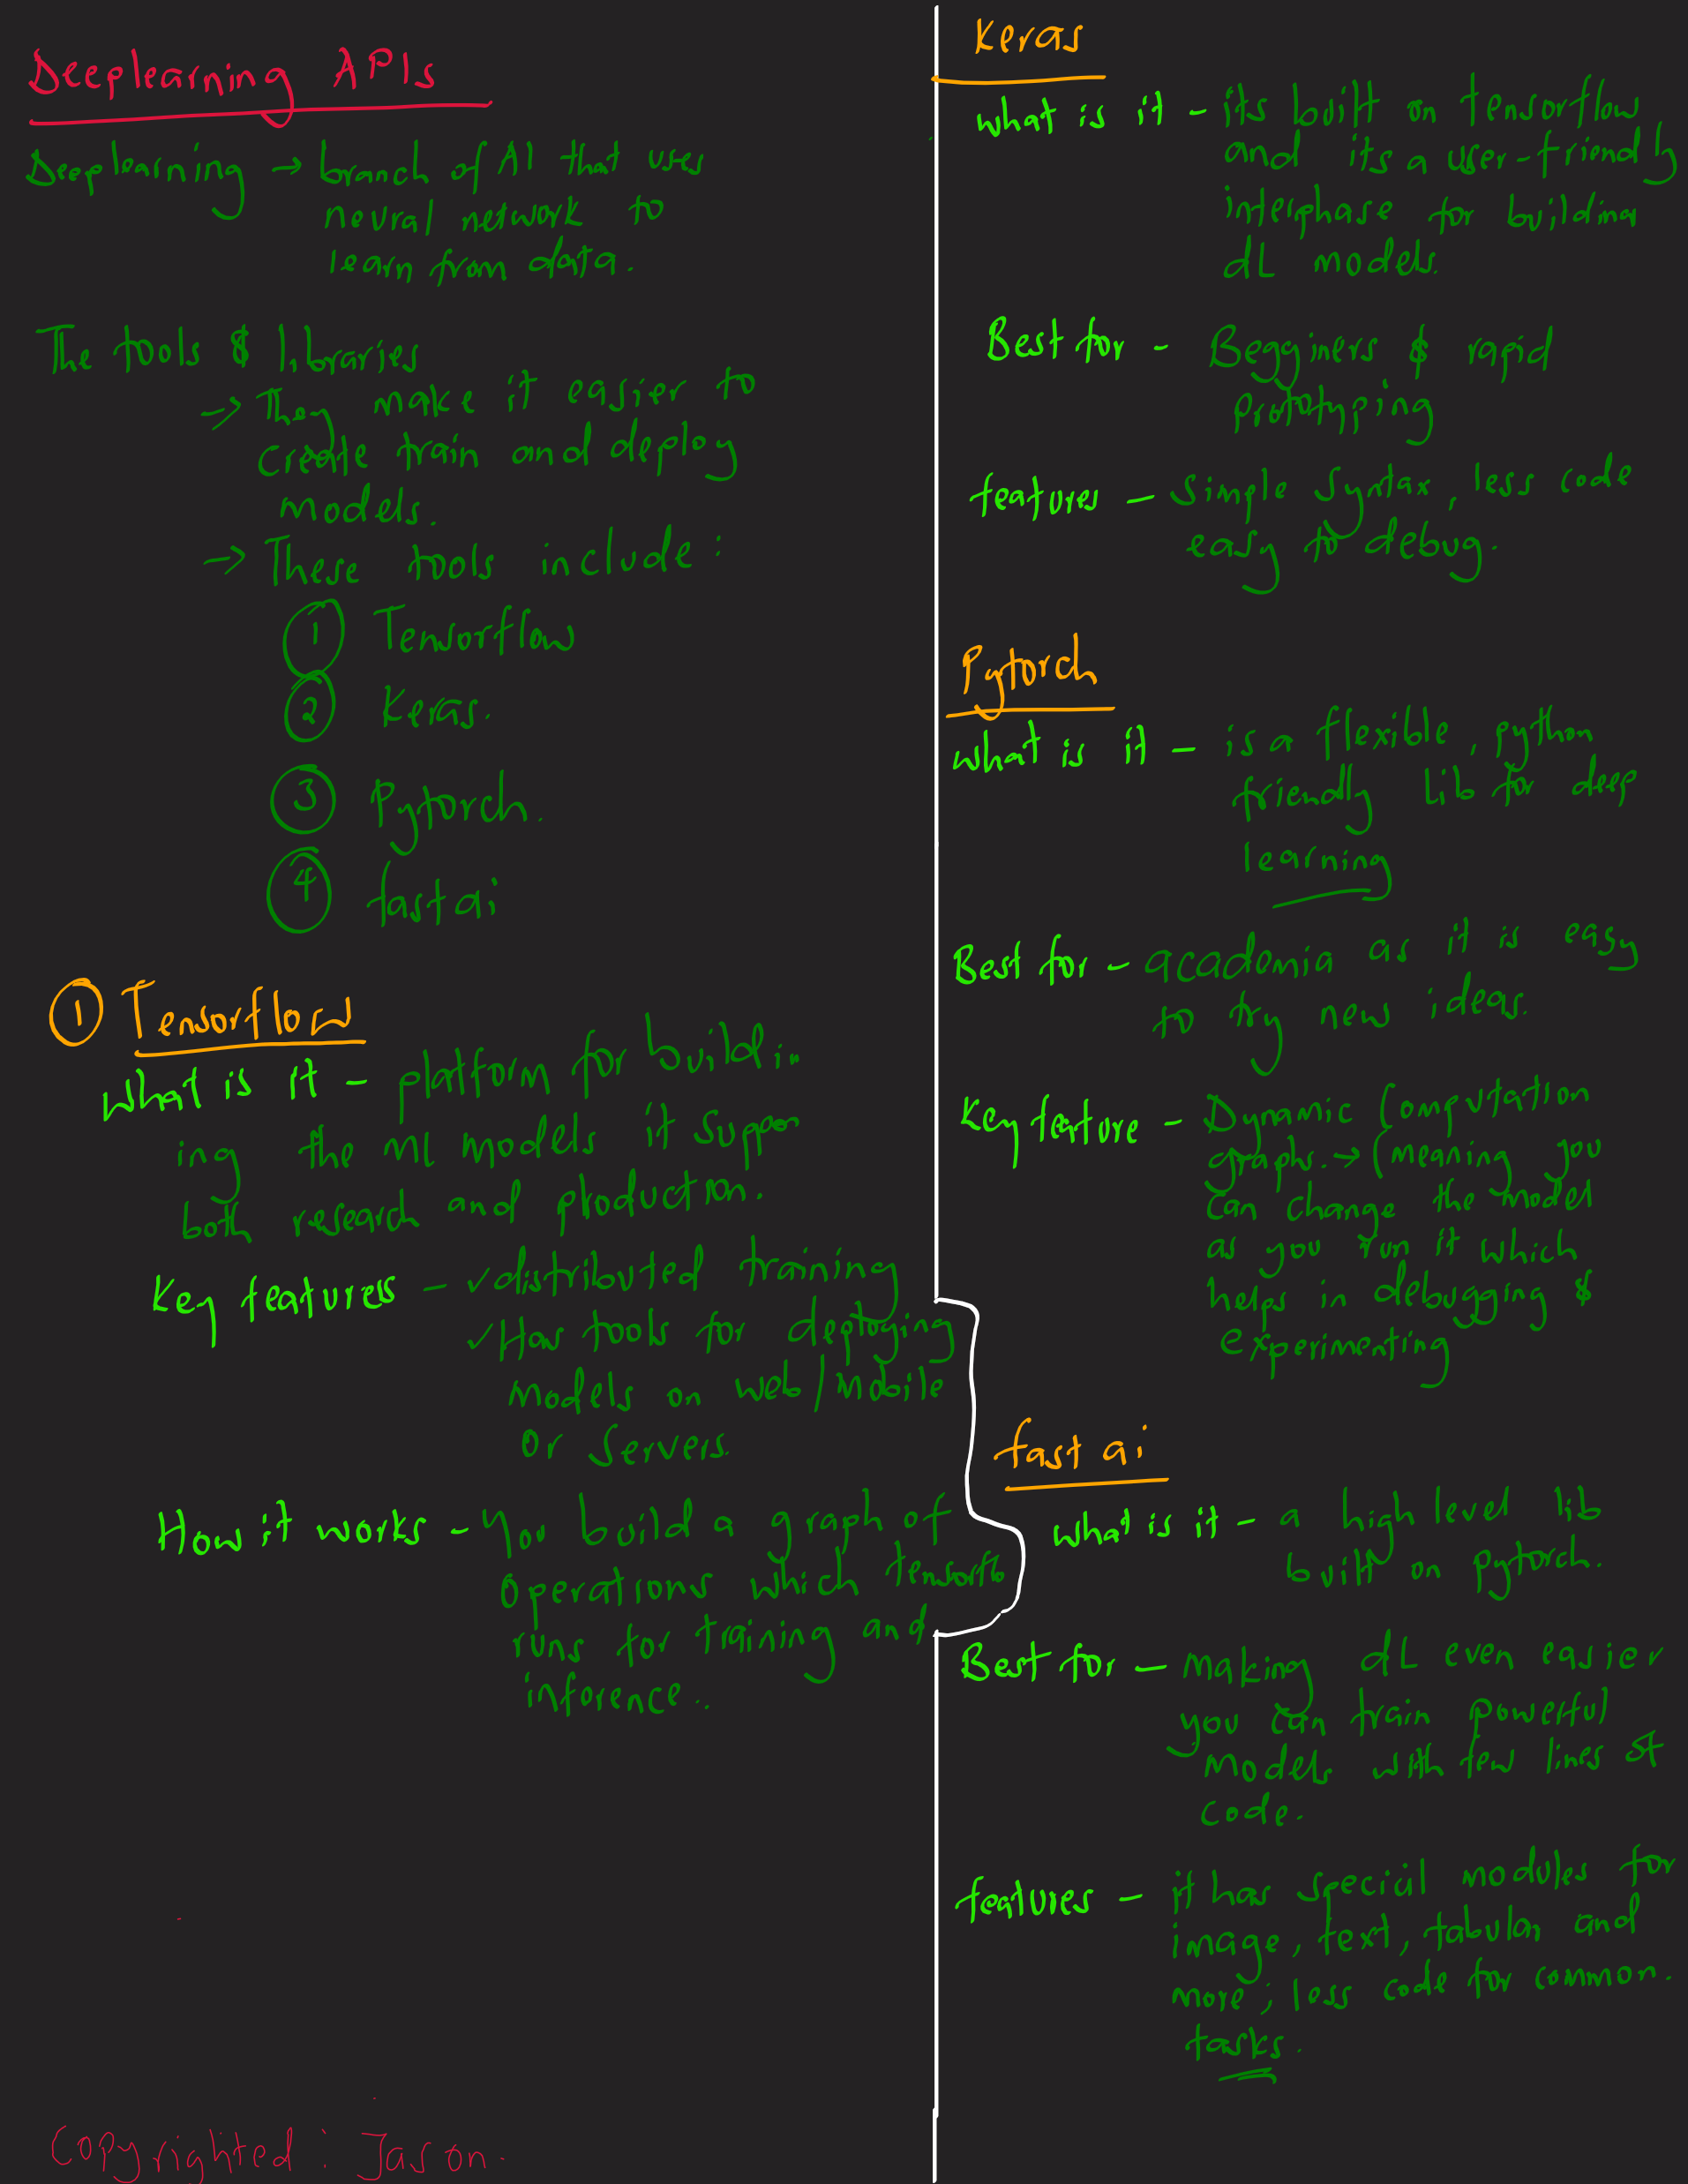 Deeplearning APIs
Deeplearning → branch of AI that uses
neural network to
learn from data.
The tools & libraries
→ They make it easier to
create train and deploy
models.
→ These tools include:
① Tensorflow
② Keras.
③ Pytorch.
④ fastai
① Tensorflow
What is it - platform for buildin
ing the ML models it suppor
both research and production.
Key features - ✓distributed training
✓Has tools for deploying
models on web/mobile
or servers.
How it works - You build a graph of
operations which tensorflo
runs for training and
inference..
Copyrighted: Jason.
Keras
what is it - its built on tensorflow
and its a user-friendly
interphase for building
dL models.
Best for - Begginers & rapid
prototyping
features - simple syntax, less code
easy to debug.
Pytorch
what is it - is a flexible, python
friendly lib for deep
learning
Best for - academia as it is easy
to try new ideas.
Key feature - Dynamic Computation
graphs. → (meaning you
can change the model
as you run it which
helps in debugging &
experimenting
fast ai
what is it - a high level lib
built on pytorch.
Best for - making dL even easier
you can train powerful
models with few lines of
code.
features - it has special modules for
image, text, tabular and
more; less code for common.
tasks.